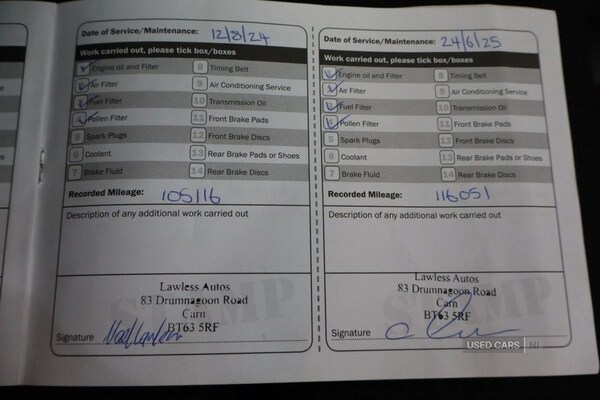 Date of Service/Maintenance: 12/8/24
Work carried out, please tick box/boxes
1 Engine oil and Filter 8 Timing Belt
2 Air Filter 9 Air Conditioning Service
3 Fuel Filter 10 Transmission Oil
4 Pollen Filter 11 Front Brake Pads
5 Spark Plugs 12 Front Brake Discs
6 Coolant 13 Rear Brake Pads or Shoes
7 Brake Fluid 14 Rear Brake Discs
Recorded Mileage: 105116
Description of any additional work carried out
STAMP
Lawless Autos
83 Drumnagoon Road
Carn
BT63 5RF
Signature
Date of Service/Maintenance: 24/6/25
Work carried out, please tick box/boxes
1 Engine oil and Filter 8 Timing Belt
2 Air Filter 9 Air Conditioning Service
3 Fuel Filter 10 Transmission Oil
4 Pollen Filter 11 Front Brake Pads
5 Spark Plugs 12 Front Brake Discs
6 Coolant 13 Rear Brake Pads or Shoes
7 Brake Fluid 14 Rear Brake Discs
Recorded Mileage: 116051
Description of any additional work carried out
STAMP
Lawless Autos
83 Drumnagoon Road
Carn
BT63 5RF
Signature
USED CARS NI